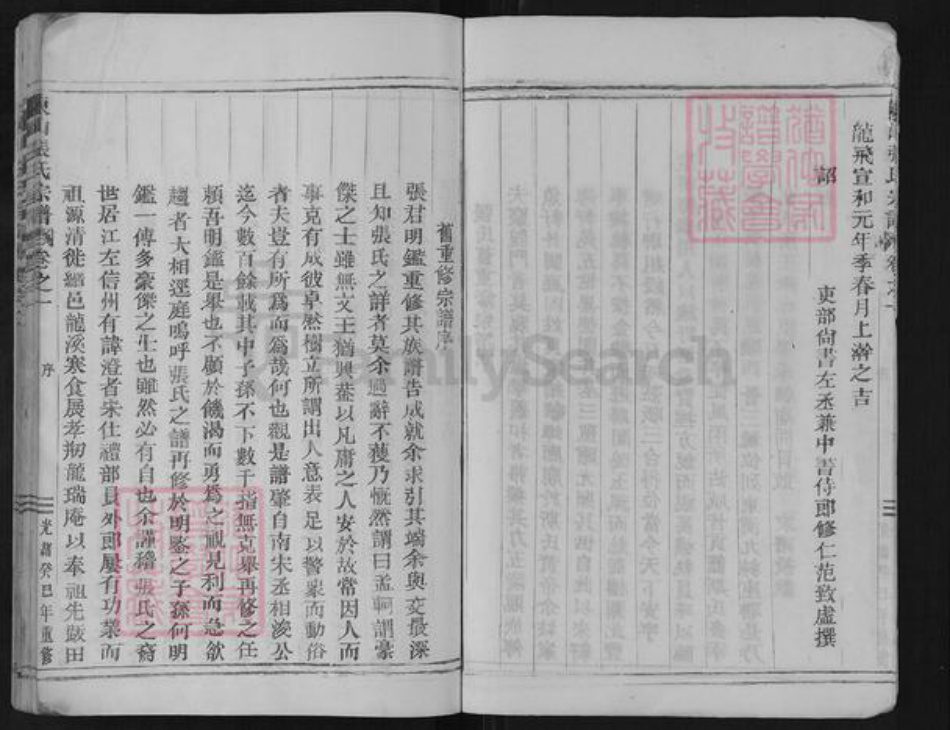 龍飛宣和元年季春月上澣之吉
詔
吏部尚書左丞兼中書侍郎修仁范致虛撰
舊重修宗譜序
張君明鑑重修其族譜告成就余求引其端余與交最深
且知張氏之詳者莫余過辭不獲乃慨然謂曰孟軻謂豪
傑之士雖無文王猶興葢以凡庸之人安於故常因人而
事克有成彼卓然樹立所謂出人意表足以警衆而動俗
者夫豈有所爲而爲哉何也觀是譜肇自南宋丞相浚公
迄今數百餘載其中子孫不下數千指無克舉再修之任
賴吾明鑑是舉也不顧於饑渴而勇爲之視見利而急欲
趨者大相逕庭嗚呼張氏之譜再修於明鑒之子孫何明
鑑一傳多豪傑之生也雖然必有自也余謹稽張氏之裔
世居江左信州有諱澄者宋仕禮部員外郎屢有功業而
祖源清徙邑龍溪寒食展孝剏龍瑞庵以奉祖先敼田
東山張氏宗譜卷之一
序
光緒癸巳年重修
FamilySearch